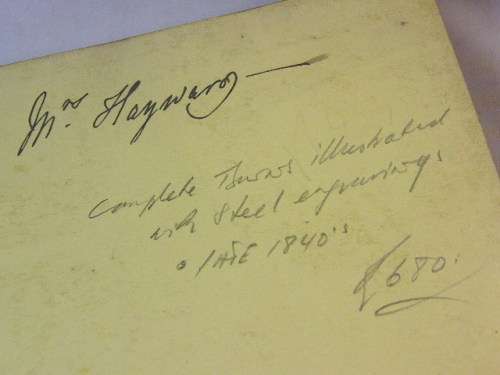 Mrs. Hayward
Complete Burns illustrated
with Steel engravings
LATE 1840's
£680.